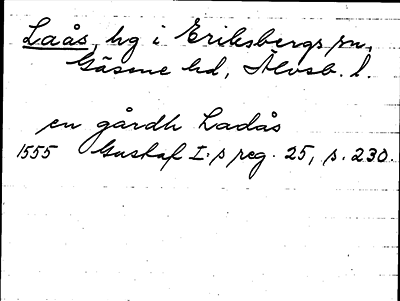 Laås, hg i Eriksbergs sn,
Gäsene hd, Älvsb. l.
en gårdh Ladås
1555 Gustaf I:s reg. 25, s. 230.